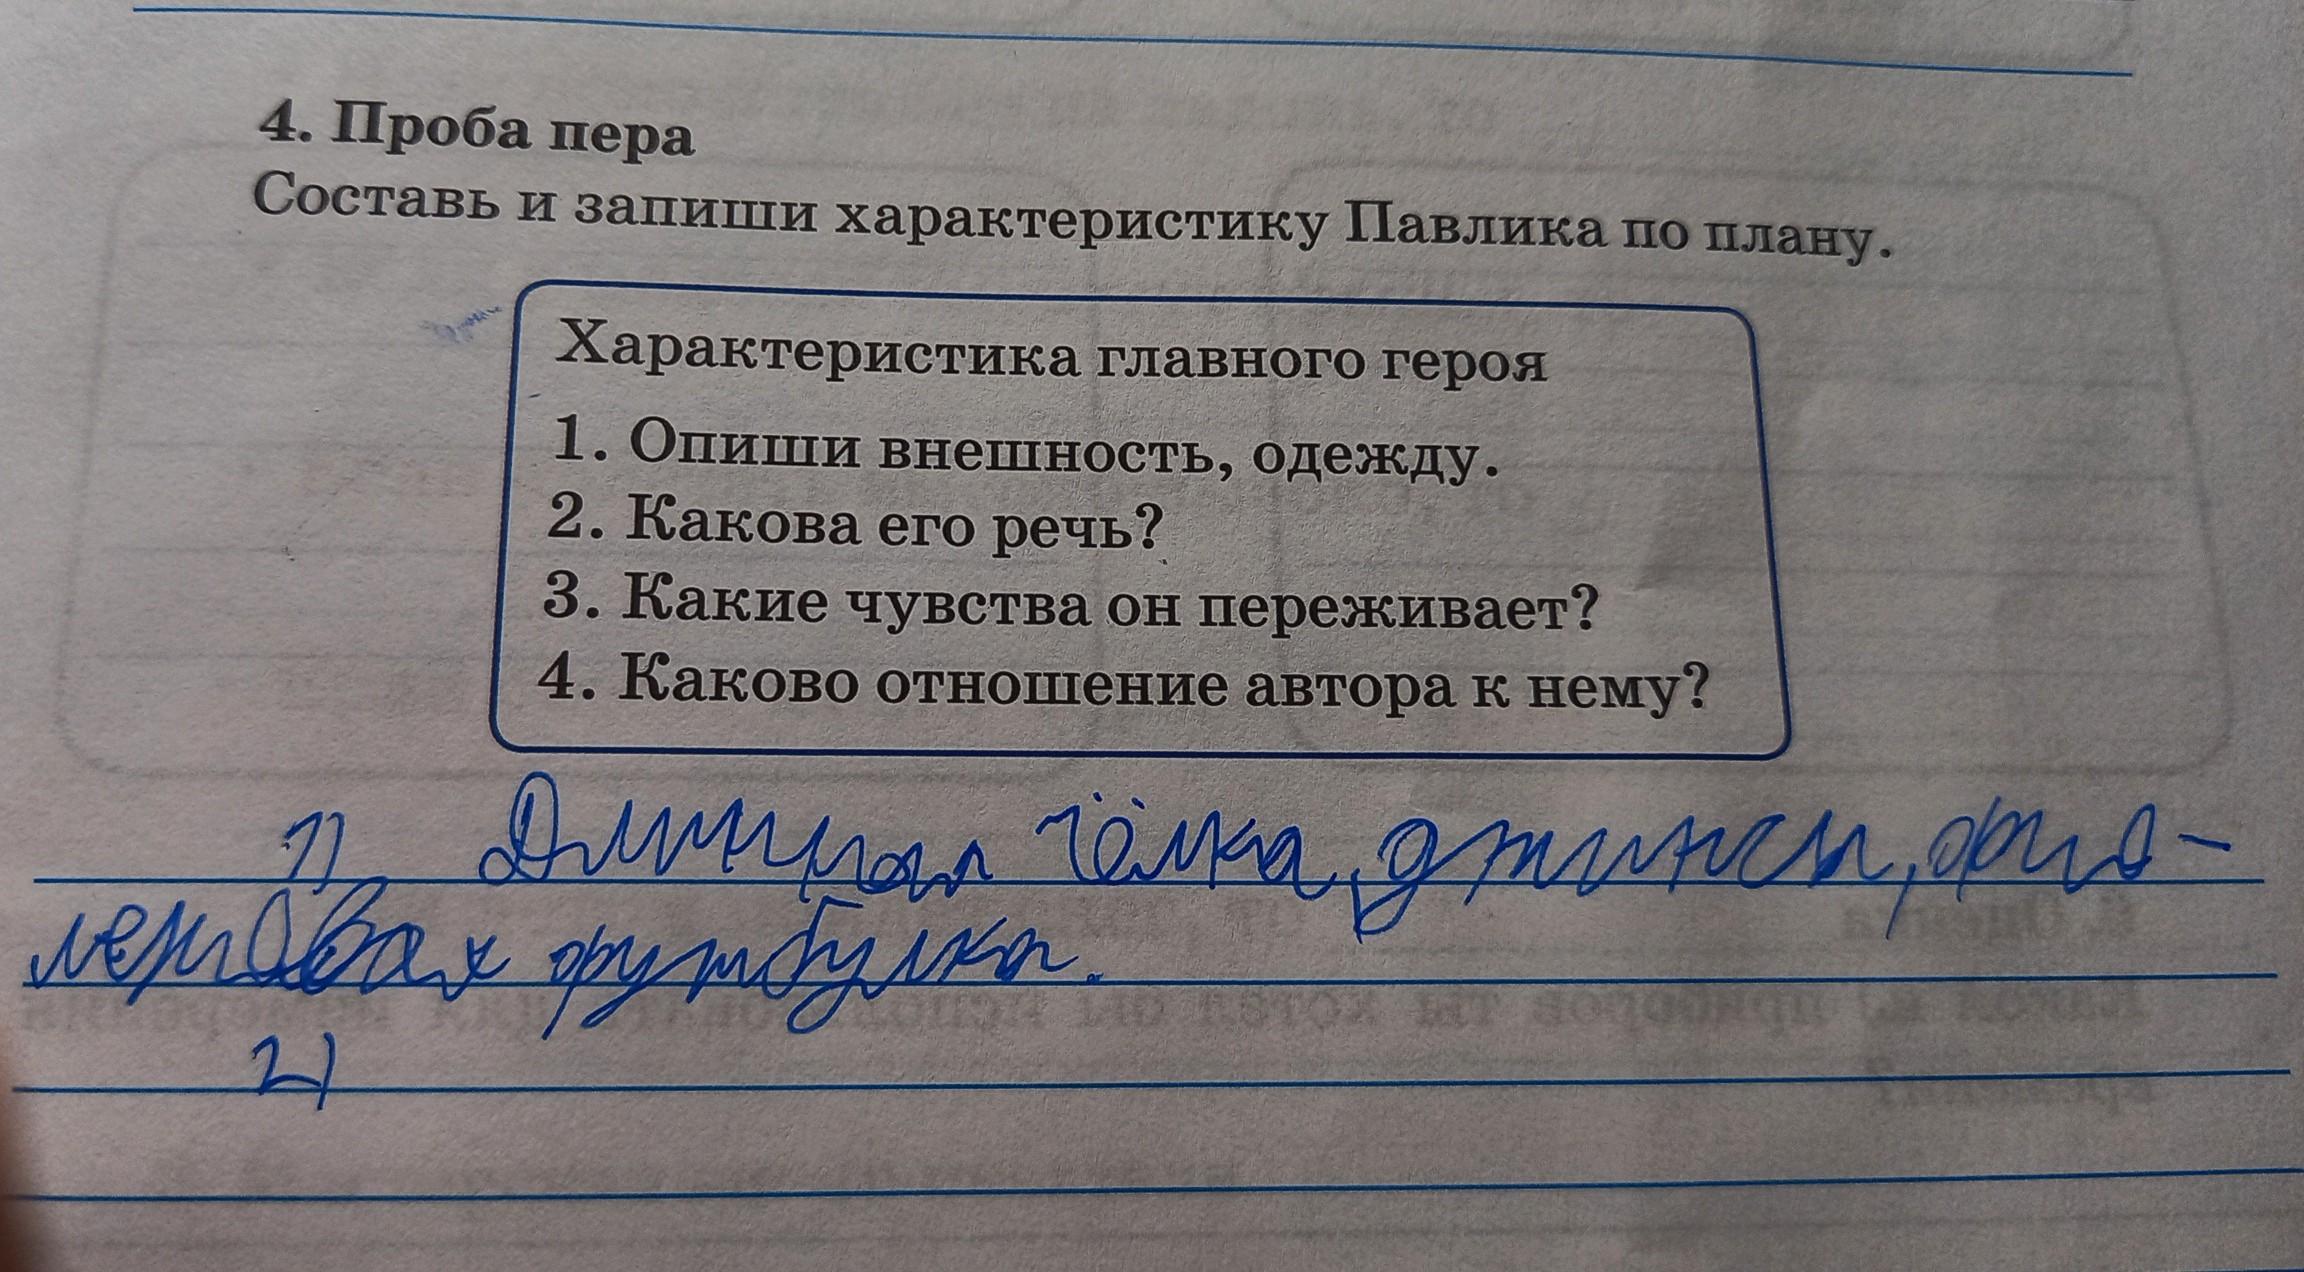 4. Проба пера
Составь и запиши характеристику Павлика по плану.
Характеристика главного героя
1. Опиши внешность, одежду.
2. Какова его речь?
3. Какие чувства он переживает?
4. Каково отношение автора к нему?
1) Длинная чёлка, джинсы, фио-
летовая футболка.
2)